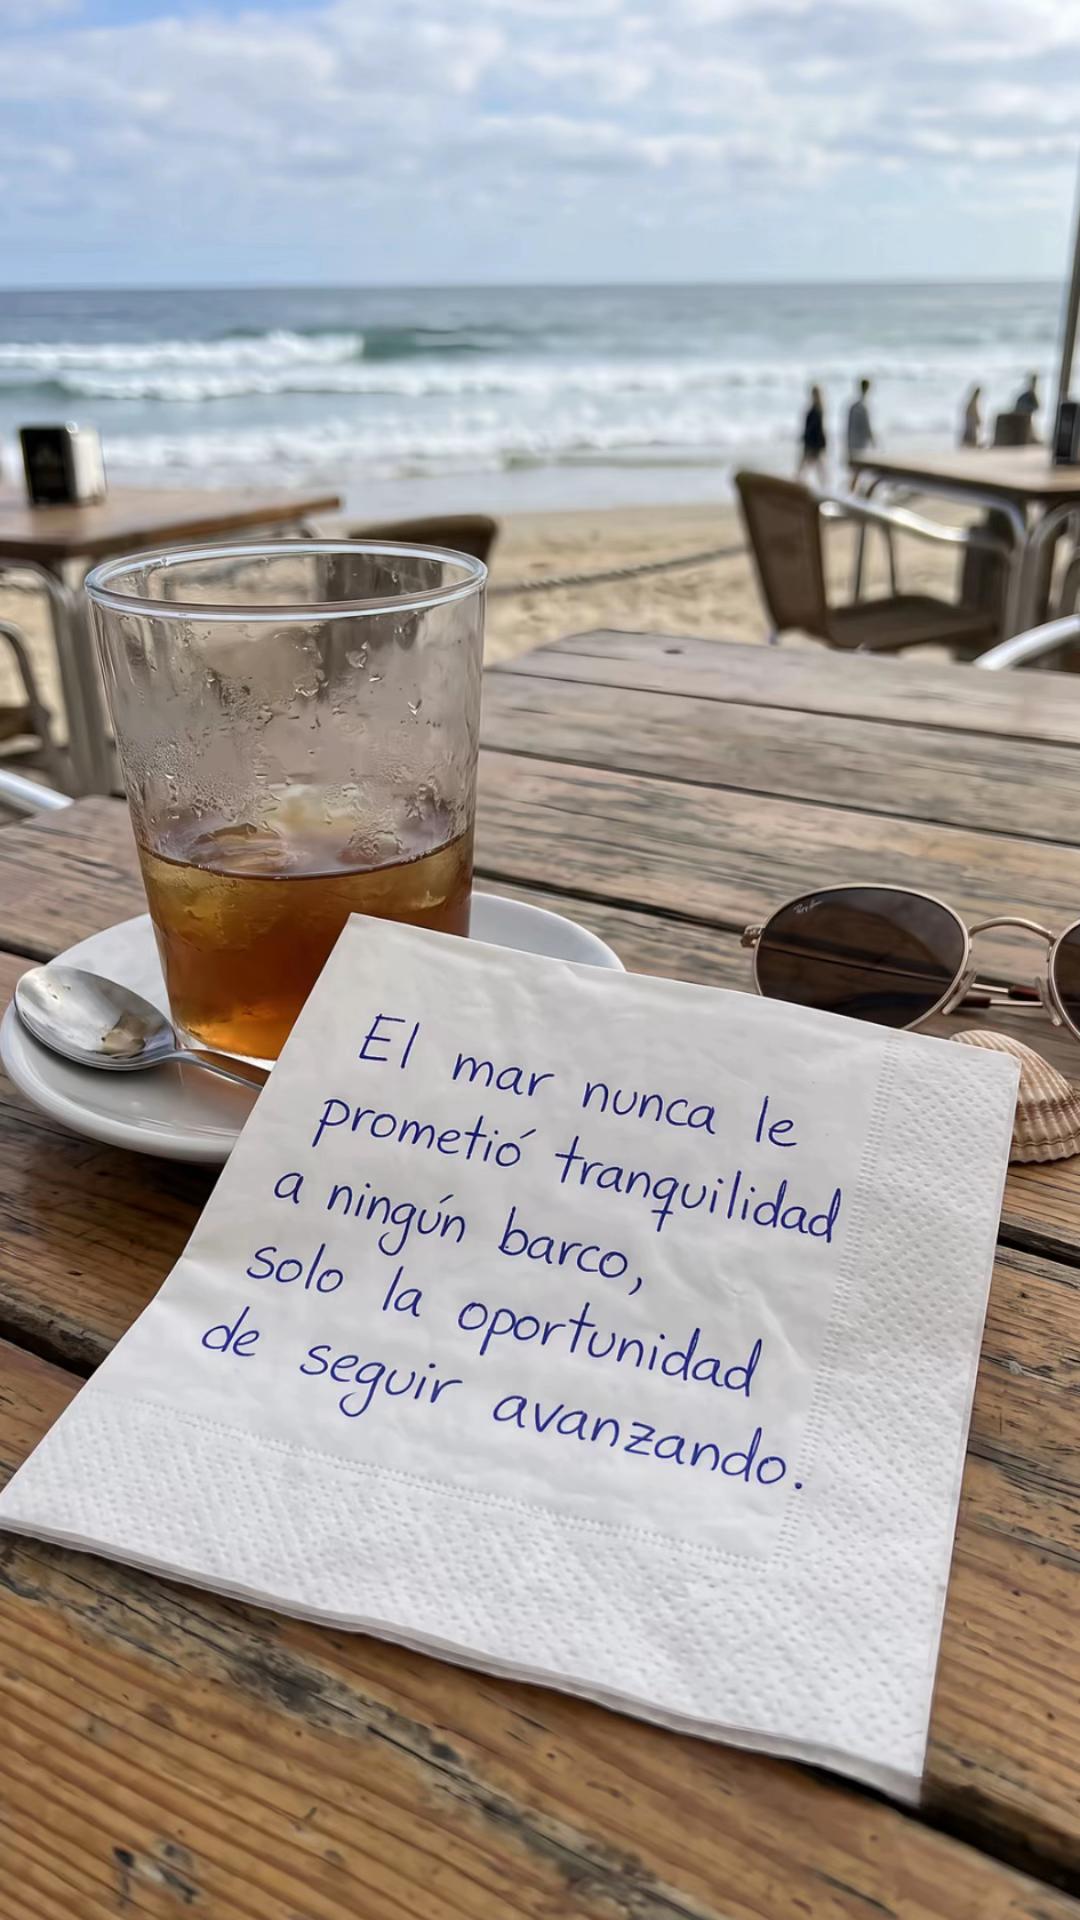 El mar nunca le
prometió tranquilidad
a ningún barco,
solo la oportunidad
de seguir avanzando.